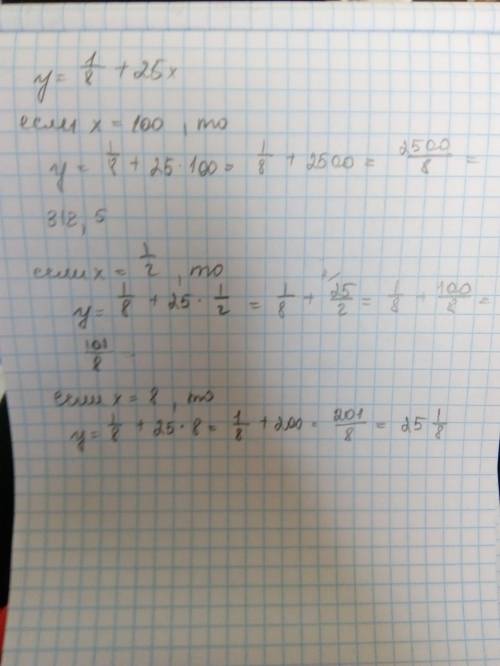 y = 1/8 + 25x
если x = 100, то
y = 1/8 + 25 · 100 = 1/8 + 2500 = 2500/8 =
312,5
если x = 1/2, то
y = 1/8 + 25 · 1/2 = 1/8 + 25/2 = 1/8 + 100/8 =
101/8
если x = 8, то
y = 1/8 + 25 · 8 = 1/8 + 200 = 201/8 = 25 1/8